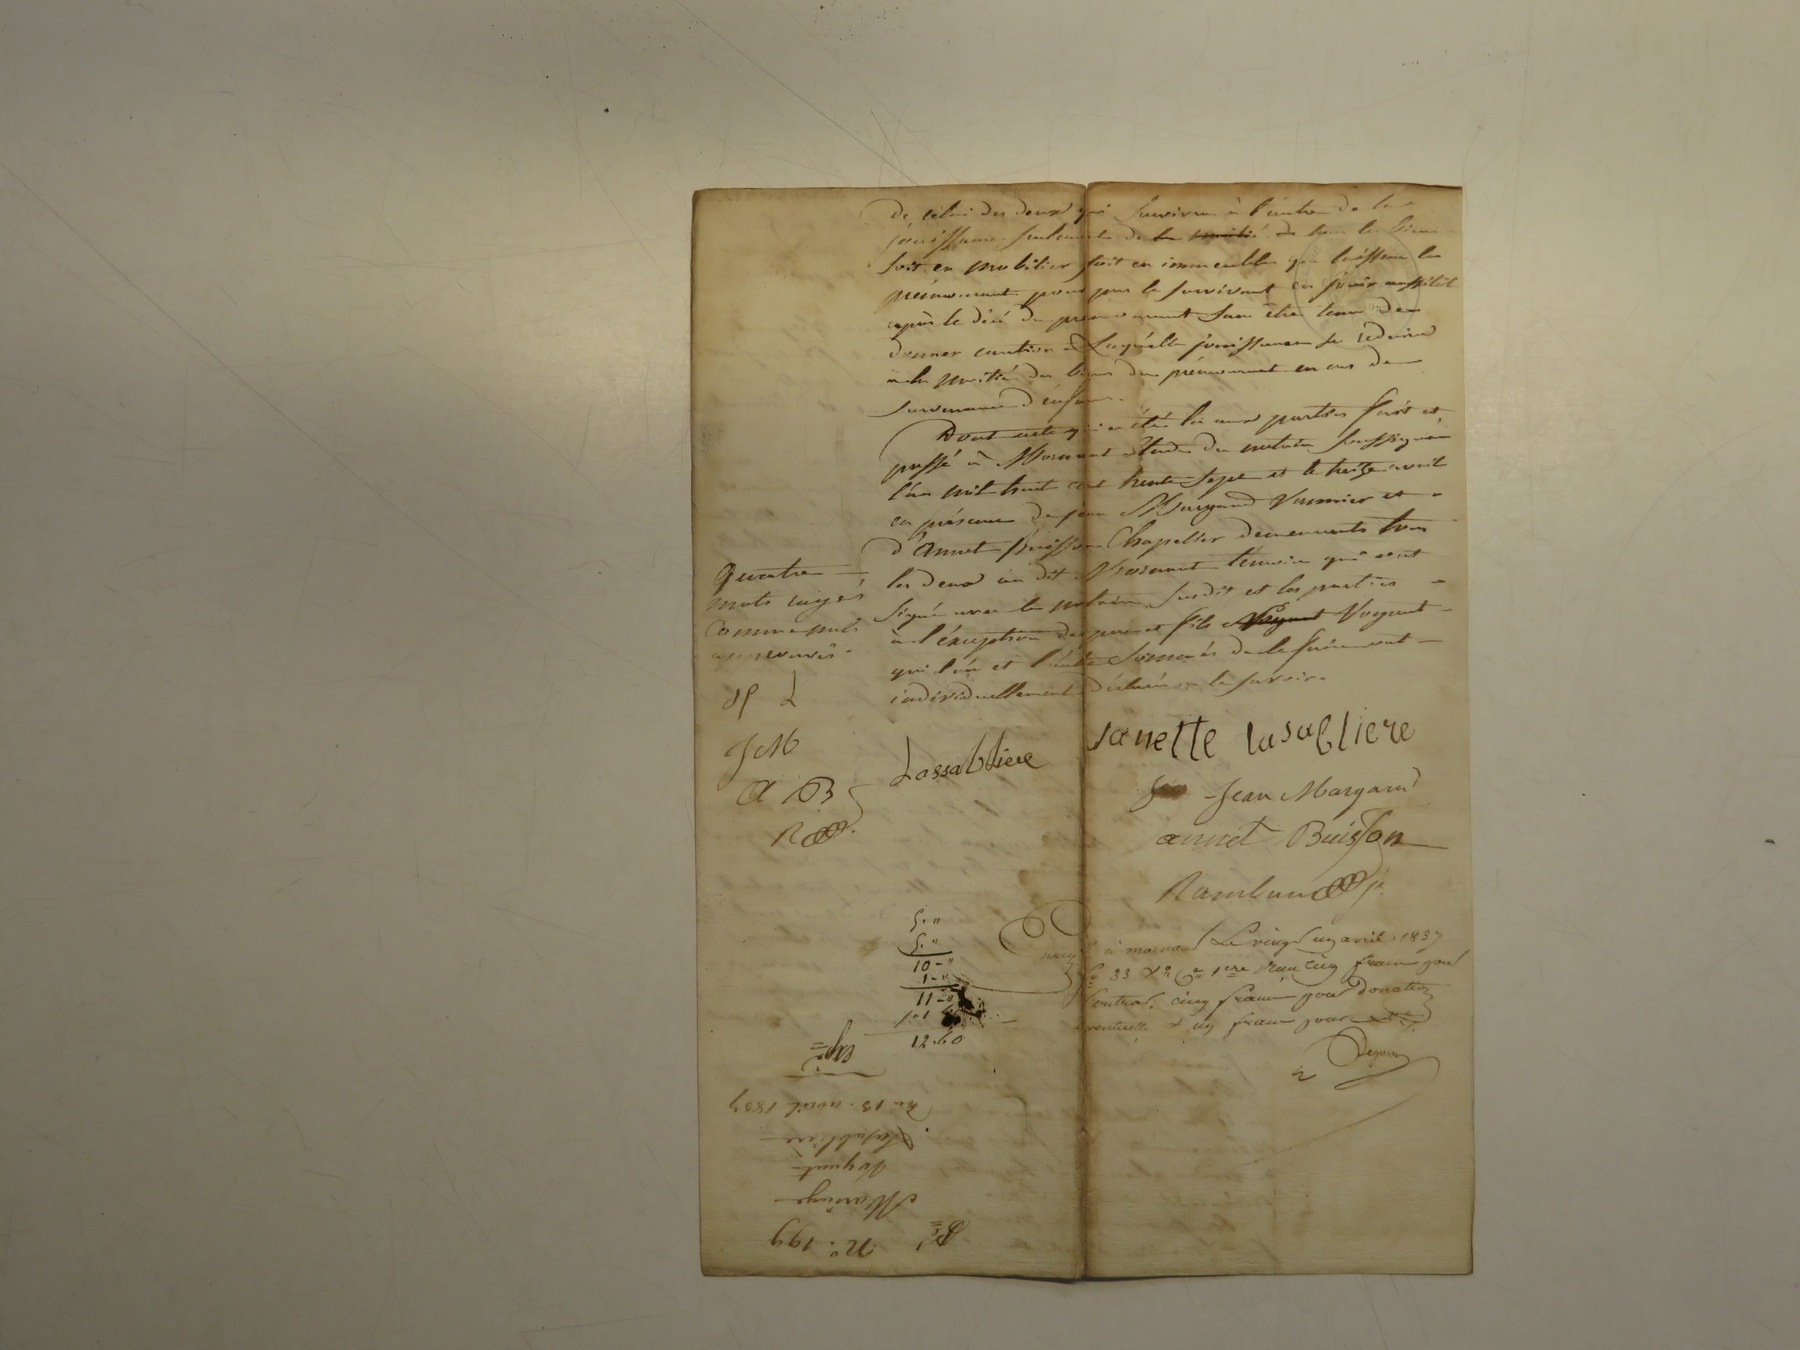 de celui des deux qui survivra à l'autre de la
jouissance seulement de la moitié de tous les biens
soit en mobilier soit en immeubles que laissera le
prémourant pour par le survivant en jouir aussitôt
après le décé du prémourant sans être tenu de
donner caution Laquelle jouissance se réduira
à la moitié des biens du prémourant en cas de
survenance d'enfans.
Dont acte qui a été lu aux parties fait et
passé à Mornant étude du notaire soussigné
l'an mil huit cent trente sept et le treize avril
en présence de jean Margand Vannier et
d'Annet Buisson Chapellier demeurants tous
les deux au dit Mornant temoins qui ont
signé avec le notaire susdit et les parties
à l'éxception des pere et fils Voyant
qui l'un et l'autre sommés de le faire ont
individuellement déclaré ne le savoir.
Quatre
mots rayés
comme nuls
approuvés.
L
JM
A B
R
Lassabliere
Janette lasabliere
Jean Margand
annet Buisson
à mornant Le vingt un avril 1837
fo 33 Vo Ce 1ere Reçu cinq francs pour
Contrat, cinq francs pour donation
eventuelle & un franc pour
5."
5."
10-"
1-"
11-"
12.60
No. 199
Mariage
Voyant
Lasabliere
Du 13. avril 1837